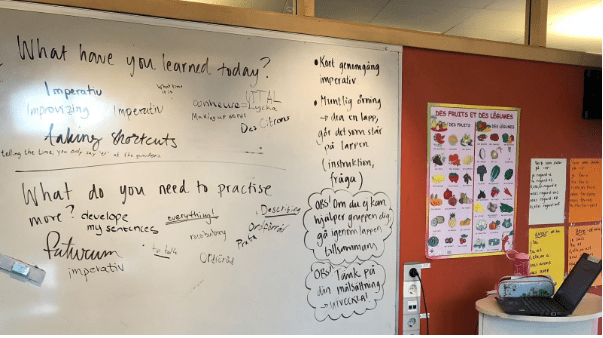 What have you learned today?
Imperativ
Improvizing
Imperativ
What time
it is
bonheure=
Lycka
Making up as we
Des Citrons
taking shortcuts
telling the time, you only say "et" at the quarters
What do you need to practise
more? develope
my sentences
everything!
vocabulary
Describing
Ordförråd
Prata
to talk
Ordförråd
futurum
imperativ
• Kort genomgång
imperativ.
• Muntlig övning
→ dra en lapp,
gör det som står
på lappen
(instruktion,
fråga)
OBS! Om du ej kan,
hjälper gruppen dig,
gå igenom lappen
tillsammans
OBS! Tänk på
din målsättning
→ UTVECKLA!
DES FRUITS ET DES LÉGUMES
DES FRUITS
DES LÉGUMES